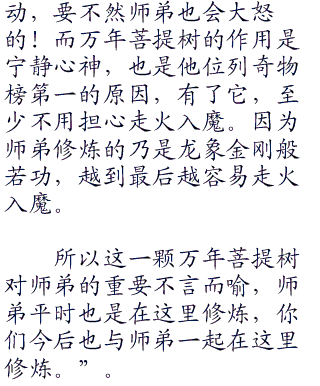 动，要不然师弟也会大怒
的！而万年菩提树的作用是
宁静心神，也是他位列奇物
榜第一的原因，有了它，至
少不用担心走火入魔。因为
师弟修炼的乃是龙象金刚般
若功，越到最后越容易走火
入魔。
所以这一颗万年菩提树
对师弟的重要不言而喻，师
弟平时也是在这里修炼，你
们今后也与师弟一起在这里
修炼。”。